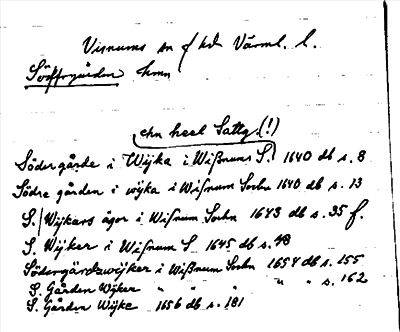 Visnums sn f hd Värml. l.
Södergården hmn
ehn heel Sattg.(!)
Södergårde i Wijka i Wißnums S. 1640 db s. 8
Södre gården i wijka i Wisnum Sochn 1640 db s. 13
S. Wijkars ägor i Wisnum Sochn 1643 db s. 35 f.
S. Wijker i Wisnum S. 1645 db s. 48
Södergårdzwijker i Wißnum Sochn 1654 db s. 155
S. Gården Wijker " " " " " s. 162
S. Gården Wijke 1656 db s. 181